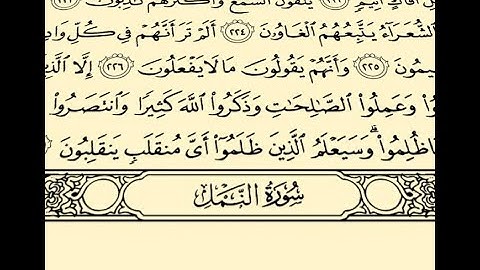 أَثِيمٍ ۝٢٢٢ يُلْقُونَ ٱلسَّمْعَ وَأَكْثَرُهُمْ كَٰذِبُونَ ۝٢٢٣
ٱلشُّعَرَآءُ يَتَّبِعُهُمُ ٱلْغَاوُۥنَ ۝٢٢٤ أَلَمْ تَرَ أَنَّهُمْ فِى كُلِّ وَادٍ
يمُونَ ۝٢٢٥ وَأَنَّهُمْ يَقُولُونَ مَا لَا يَفْعَلُونَ ۝٢٢٦ إِلَّا ٱلَّذِ
وا۟ وَعَمِلُوا۟ ٱلصَّٰلِحَٰتِ وَذَكَرُوا۟ ٱللَّهَ كَثِيرًا وَٱنتَصَرُوا۟
مَا ظُلِمُوا۟ ۗ وَسَيَعْلَمُ ٱلَّذِينَ ظَلَمُوٓا۟ أَىَّ مُنقَلَبٍ يَنقَلِبُونَ
سُورَةُ النَّمْلِ